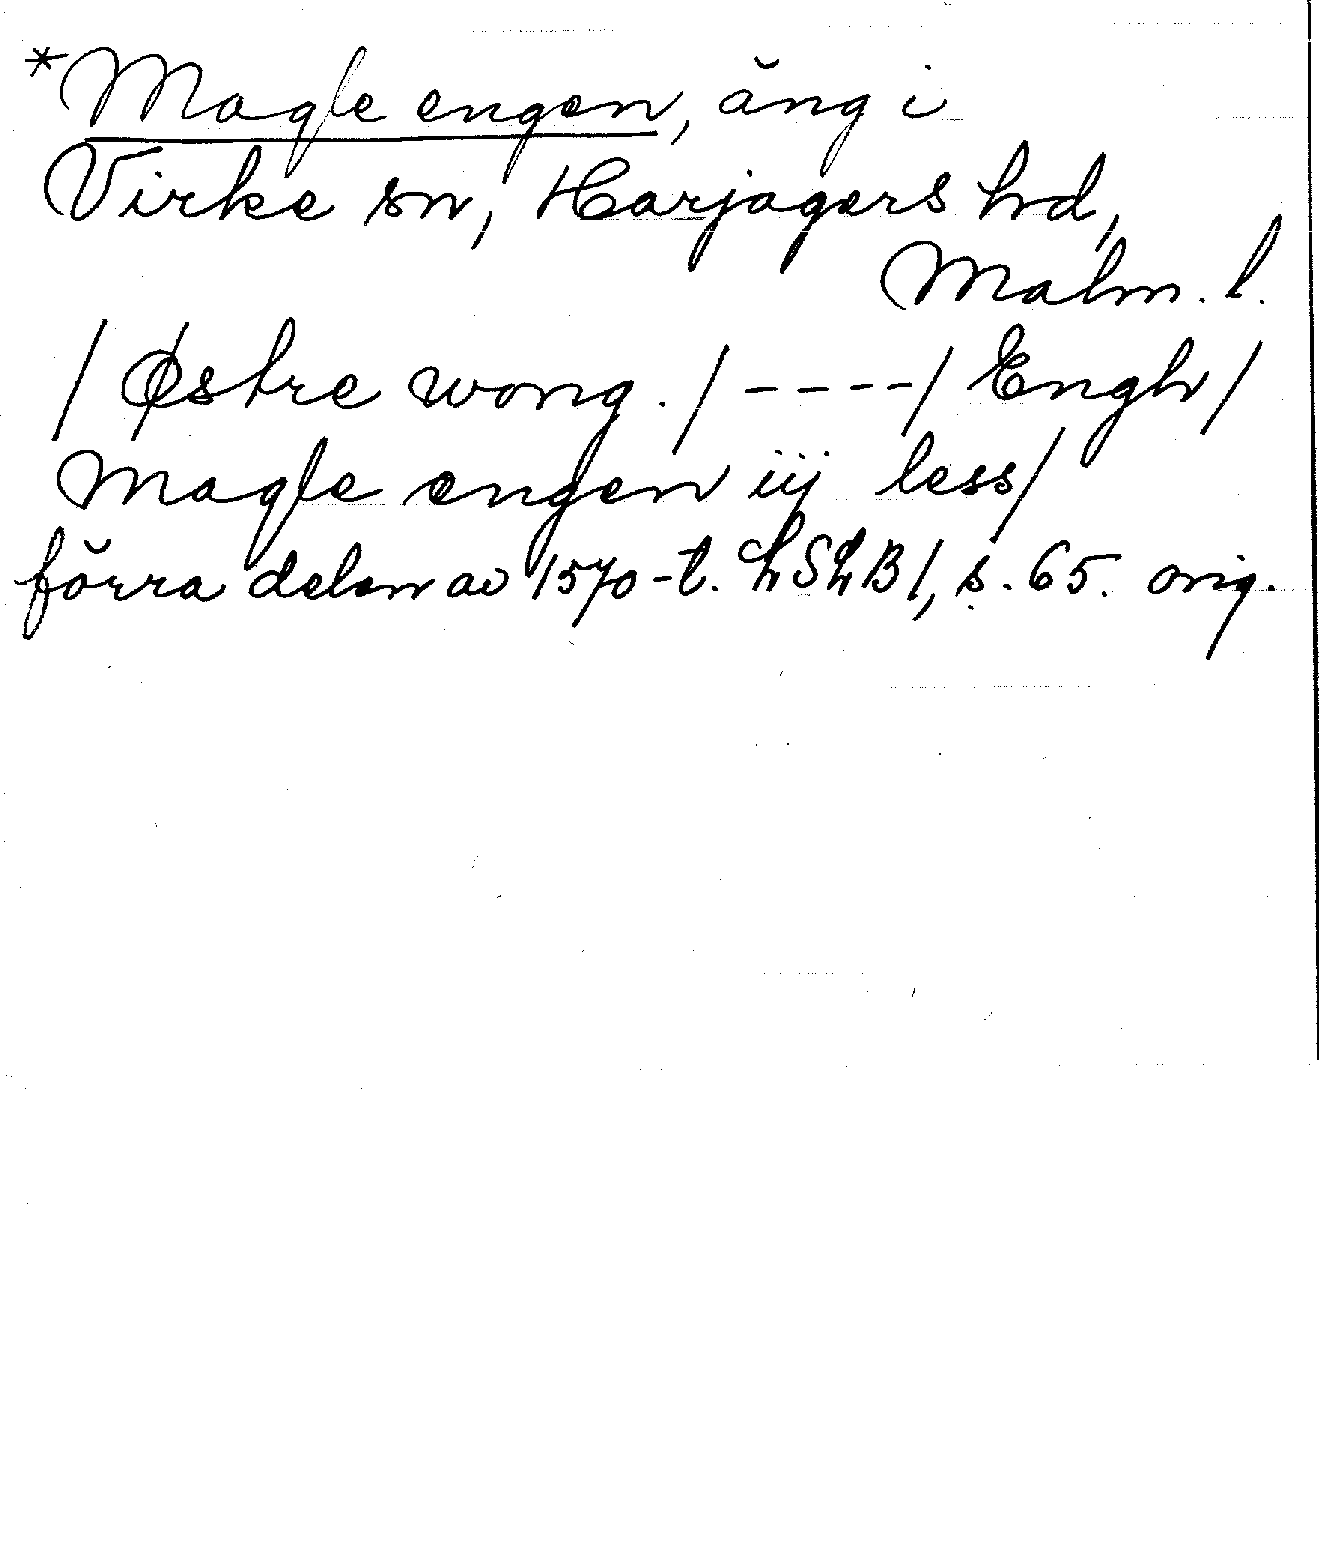 *Magle engen, äng i
Virke sn, Harjagers hd,
Malm. l.
/ Østre wong. / ----/ Engh /
Magle engen iij less/
förra delen av 1570-t. LSLB I, s. 65. orig.